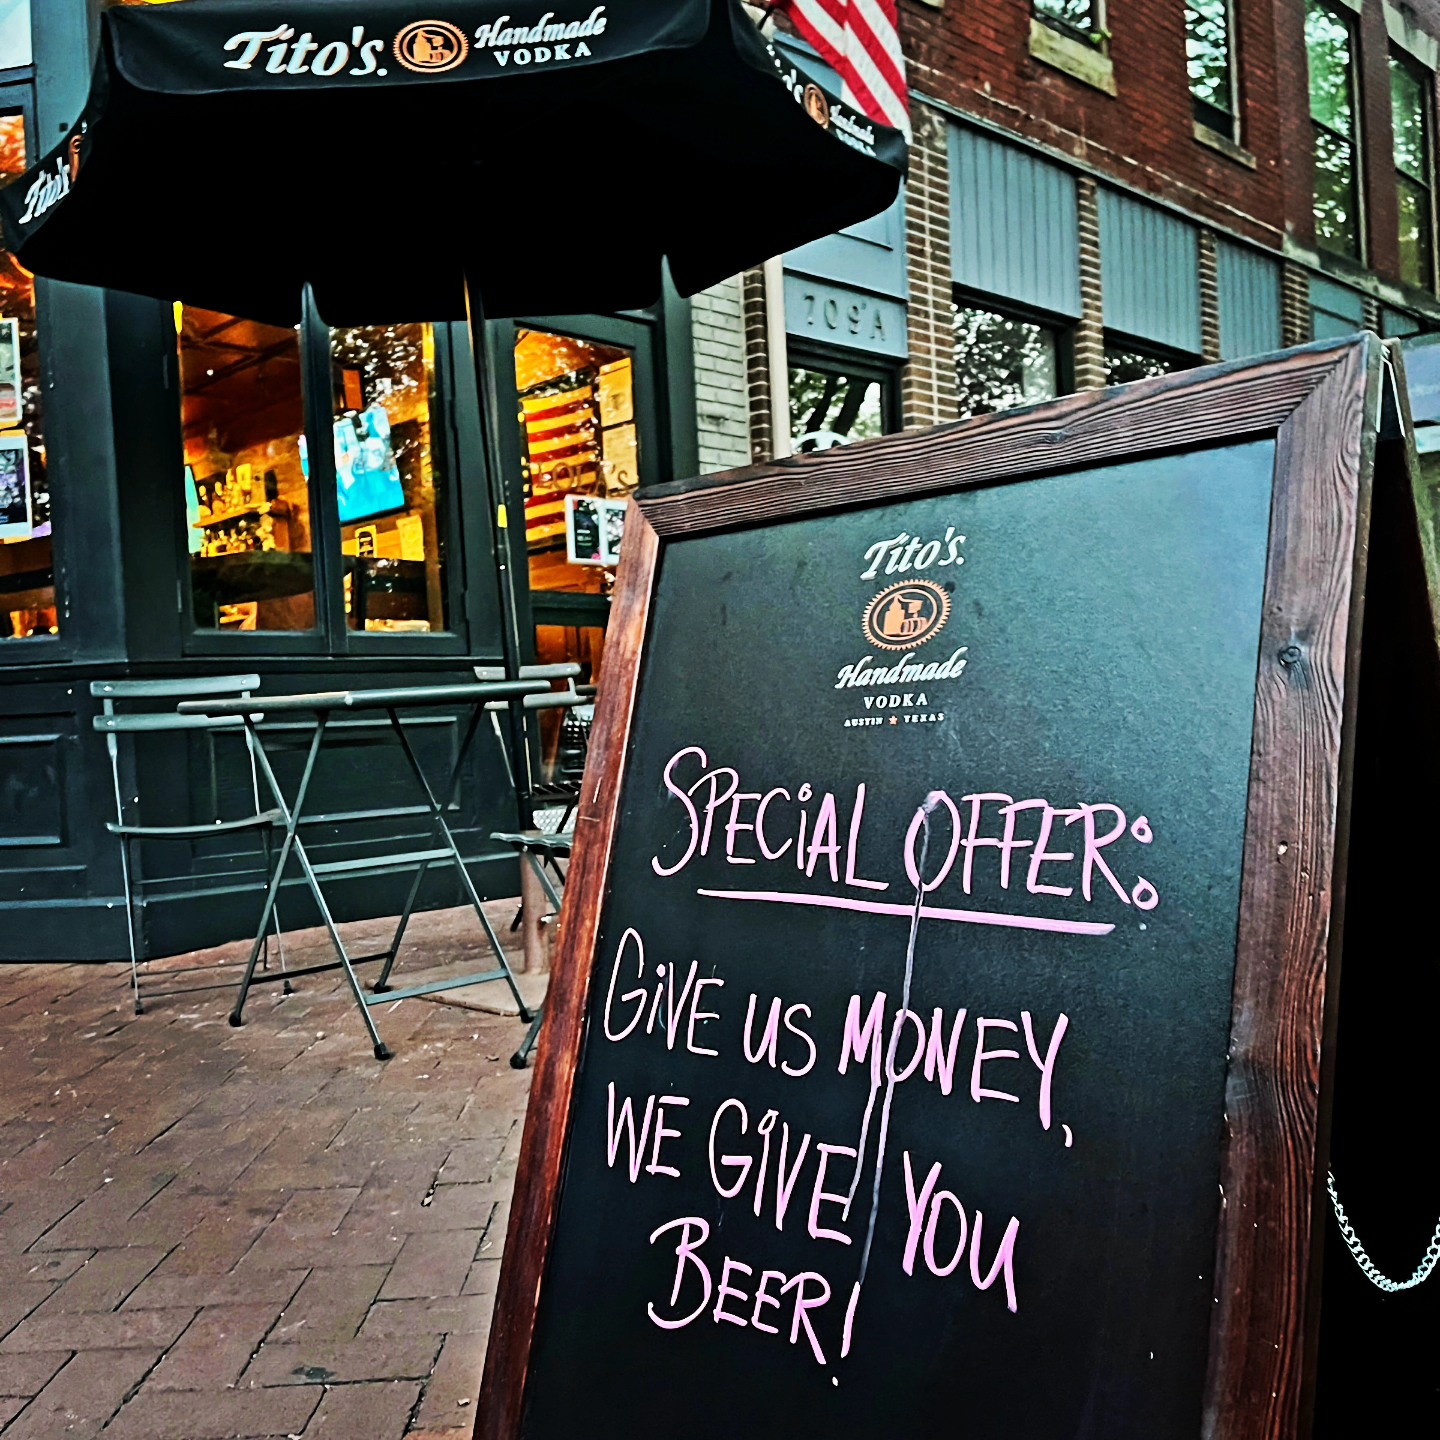 Tito's. Handmade
VODKA
Tito's
709 A
Tito's.
Handmade
VODKA
AUSTIN ★ TEXAS
SPECiAL OFFER:
GiVE US MONEY,
WE GiVE YOU
BEER!